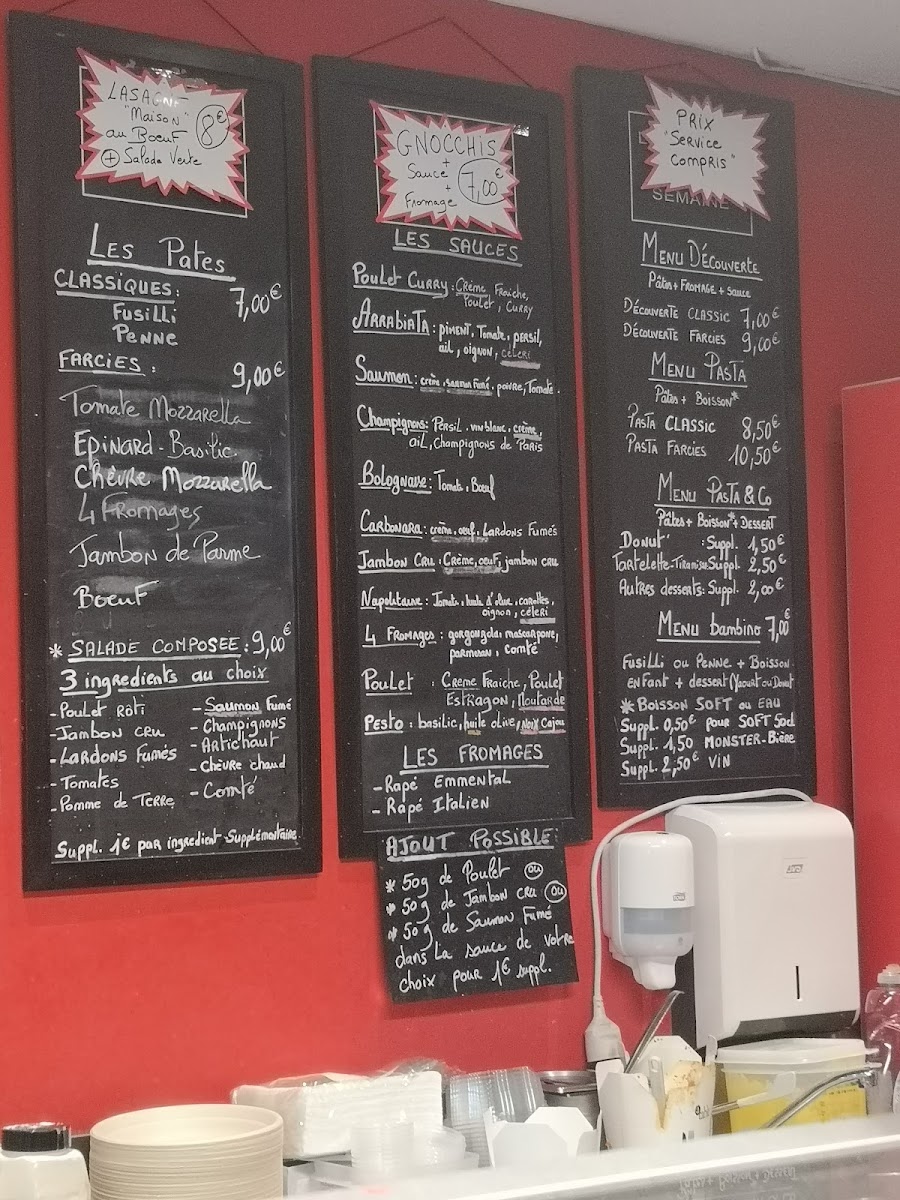 LASAGNE
"Maison"
au Boeuf 8€
+ Salade Verte
Les Pates
CLASSIQUES: 7,00€
Fusilli
Penne
FARCIES: 9,00€
Tomate Mozzarella
Epinard-Basilic
Chèvre Mozzarella
4 Fromages
Jambon de Parme
Boeuf
* SALADE COMPOSEE: 9,00€
3 ingredients au choix
- Poulet Roti
- Jambon cru
- Lardons Fumés
- Tomates
- Pomme de Terre
- Saumon Fumé
- Champignons
- Artichaut
- Chèvre chaud
- Comté
Suppl. 1€ par ingredient Supplémentaire
GNOCCHIS
+
Sauce 7,00€
+
Fromage
LES SAUCES
Poulet Curry: Crème Fraiche,
Poulet, Curry
Arrabiata: piment, Tomate, persil,
ail, oignon, céleri
Saumon: crème, saumon fumé, poivre, Tomate.
Champignons: Persil, vin blanc, crème,
ail, Champignons de Paris
Bolognaise: Tomate, Boeuf
Carbonara: crème, oeuf, Lardons Fumés
Jambon Cru: Crème, oeuf, jambon cru
Napolitaine: Tomate, huile d'olive, carottes,
oignon, céleri
4 Fromages: gorgonzola, mascarpone,
parmesan, comté
Poulet: Creme Fraiche, Poulet
Estragon, Moutarde
Pesto: basilic, huile olive, Noix Cajou
LES FROMAGES
- Rapé Emmental
- Rapé Italien
AJOUT POSSIBLE:
* 50g de Poulet ou
* 50g de Jambon cru ou
* 50g de Saumon Fumé
dans La sauce de votre
choix pour 1€ suppl.
PRIX
"Service
compris"
SEMAINE
Menu Découverte
Pâtes + Fromage + sauce
Découverte Classic 7,00€
Découverte Farcies 9,00€
Menu Pasta
Pâtes + Boisson*
Pasta Classic 8,50€
Pasta Farcies 10,50€
Menu Pasta & Co
Pâtes + Boisson* + Dessert
Donut : Suppl. 1,50€
Tartelette-Tiramisu Suppl. 2,50€
Autres desserts: Suppl. 2,00€
Menu bambino 7,00€
Fusilli ou Penne + Boisson
enfant + dessert (Yaourt ou Donut
* Boisson SOFT ou EAU
Suppl. 0,50€ pour SOFT 50cl
Suppl. 1,50 MONSTER-Bière
Suppl. 2,50€ VIN